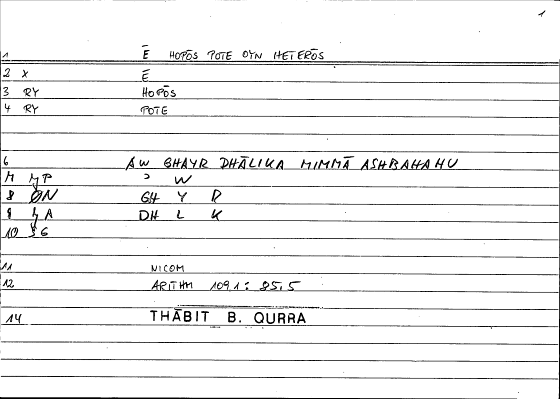 1
1 Ē HOPŌS POTE OYN HETERŌS
2 X Ē
3 RY HOPŌS
4 RY POTE
6 AW GHAYR DHĀLIKA MIMMĀ ASHBAHAHU
ʾ W
8 ØN GH Y R
DH L K
10
11 NICOM
12 ARITHM 109,1 : 95,5
14 THĀBIT B. QURRA